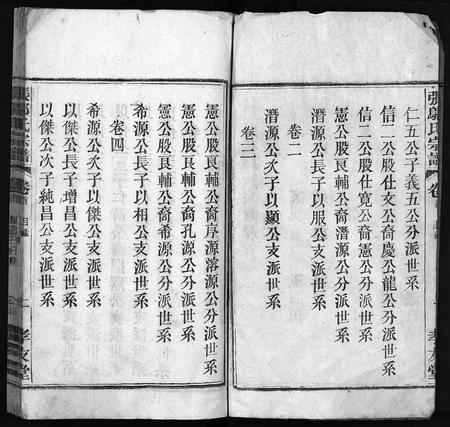 張鄔氏宗譜
卷
孝友堂
仁五公子義五公分派世系
信二公股仕文公裔慶公龍公分派世系
信二公股仕寬公裔憲公分派世系
憲公股艮輔公裔潛源公分派世系
潛源公長子以服公支派世系
卷二
潛源公次子以顯公支派世系
卷三
憲公股艮輔公裔淳源溶源公分派世系
憲公股艮輔公裔孔源公分派世系
憲公股艮輔公裔希源公分派世系
卷四
希源公長子以相公支派世系
希源公次子以傑公支派世系
以傑公長子增昌公支派世系
以傑公次子純昌公支派世系
孝友堂